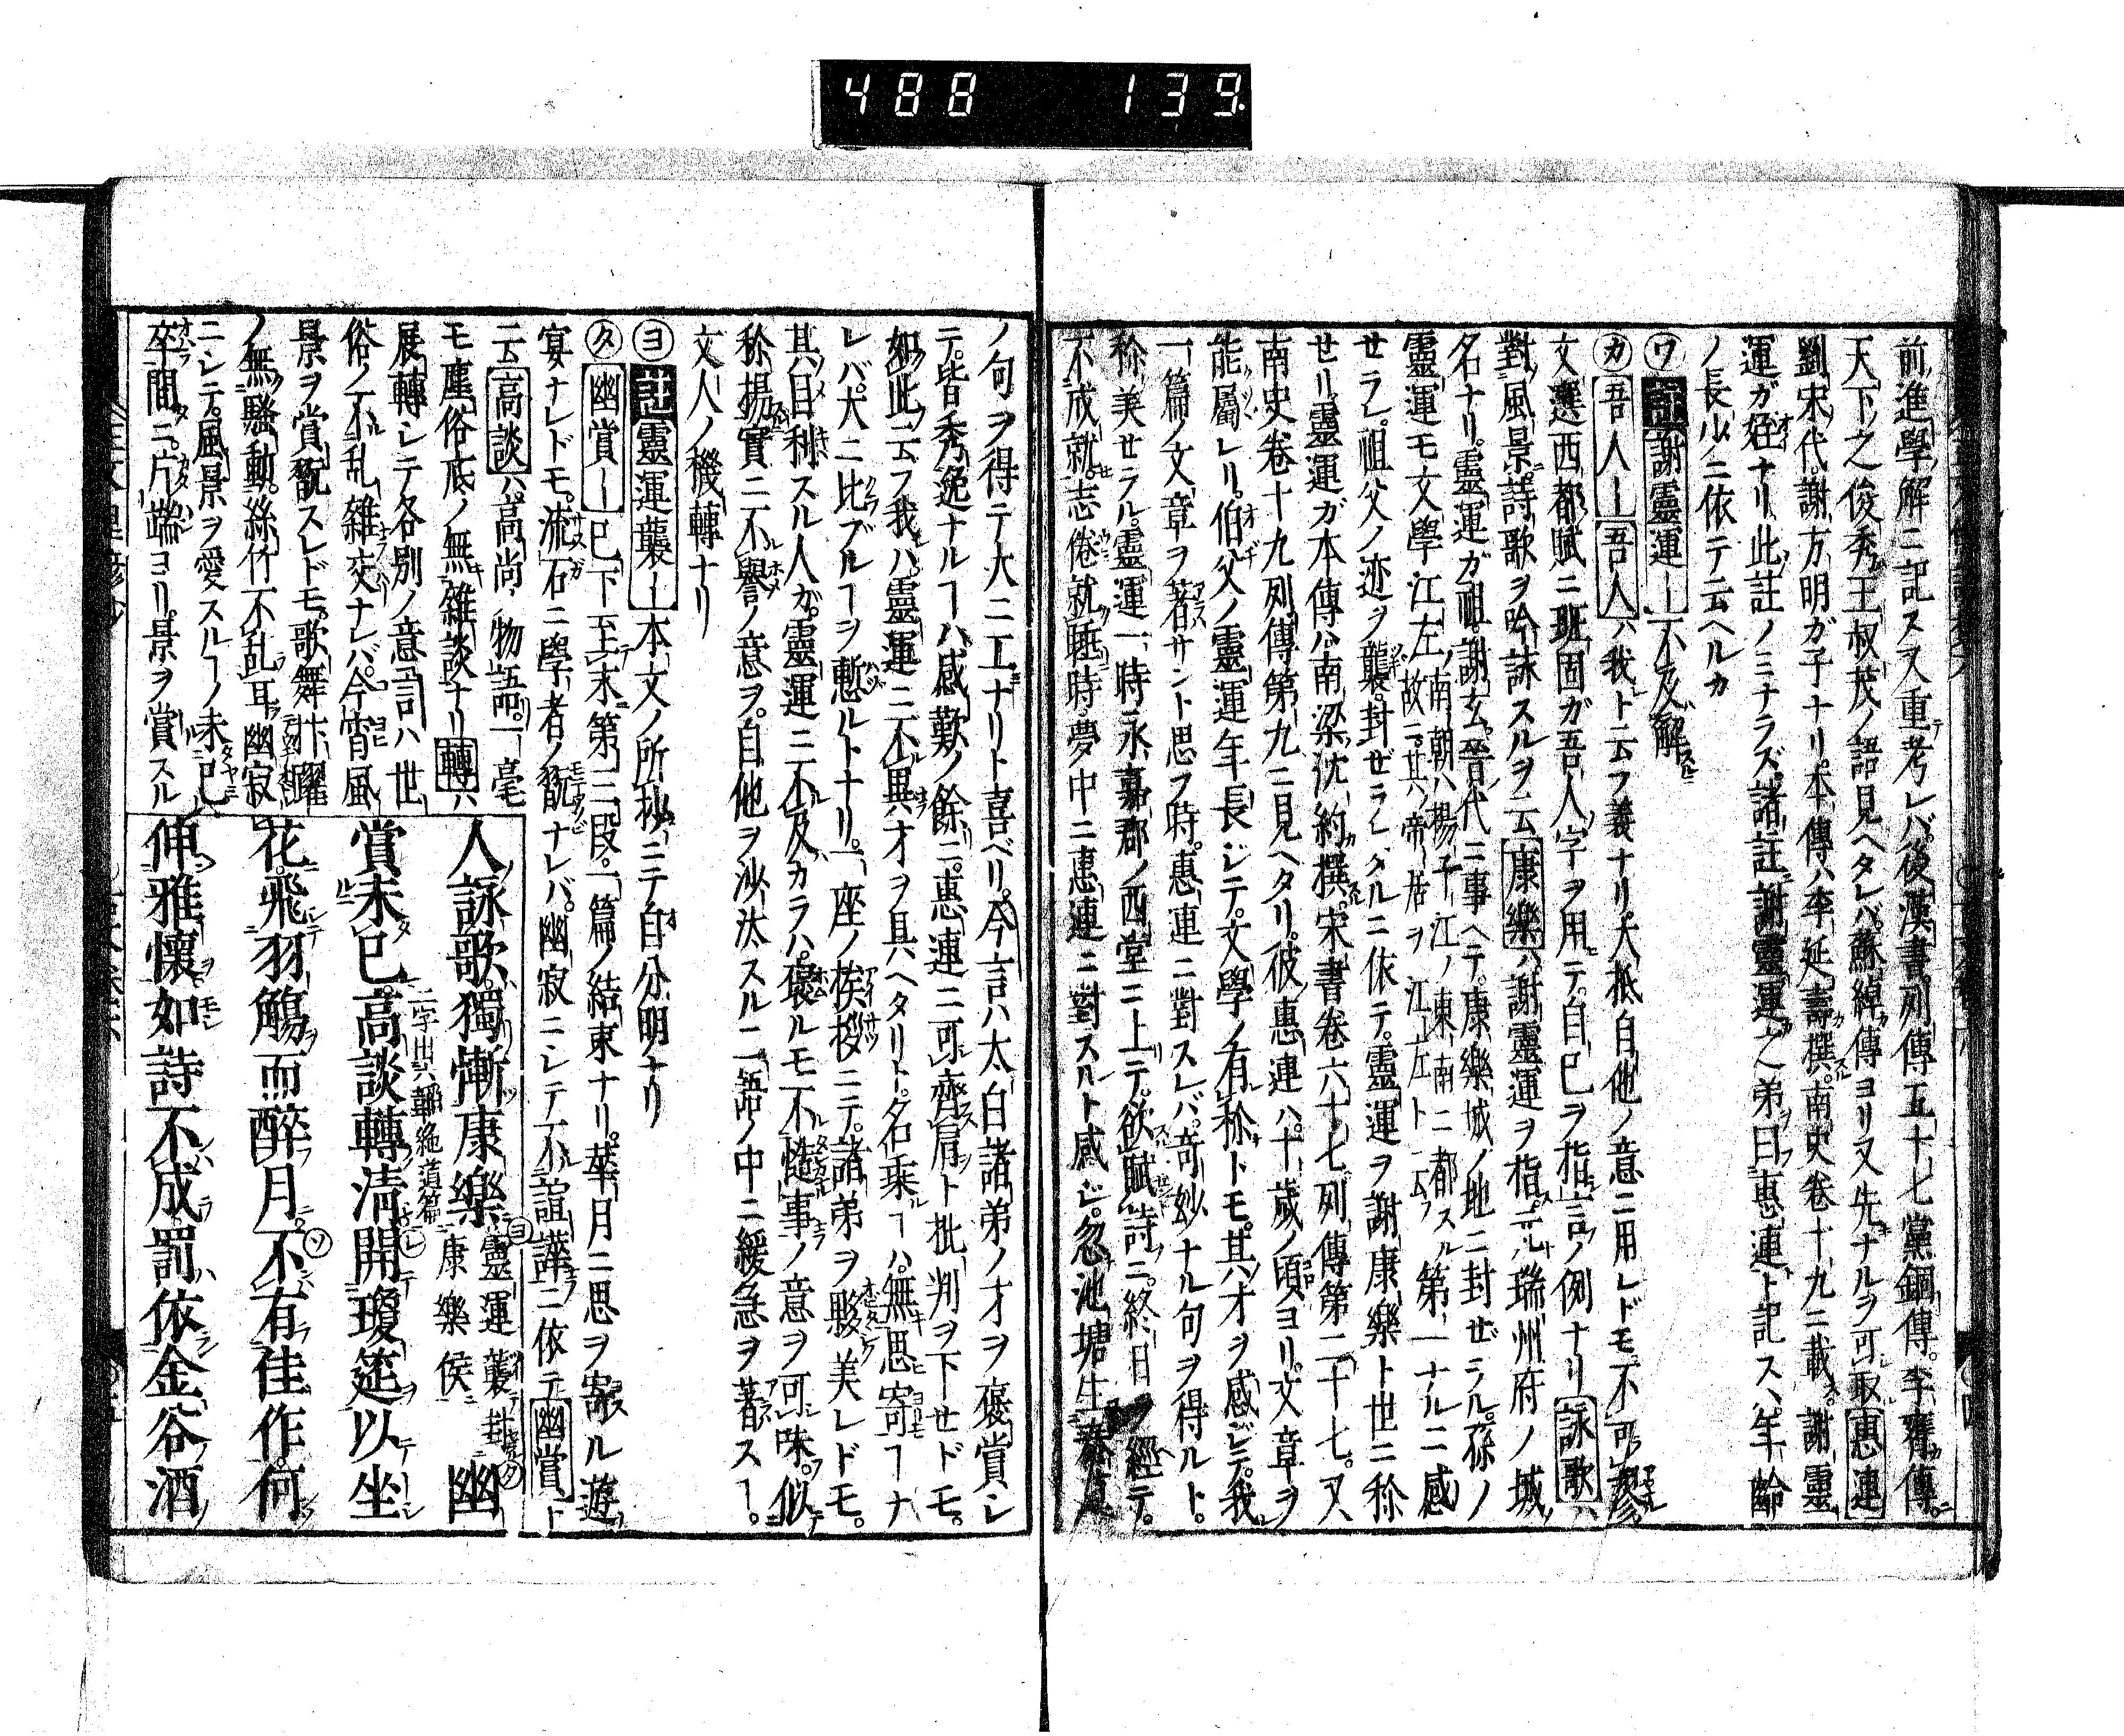 488 139
前進學解ニ記スヌ重考レバ後漢書列傳五十七黨錮傳李膺傳
天下之俊秀王叔茂ノ語見ヘタレバ蘇綽傳ヨリ又先ナルヲ可取惠連
劉宋代謝方明ガ子ナリ本傳ハ李延壽撰南史卷十九ニ載謝靈
運ガ姪ナリ此註ノミナラズ諸註謝靈運之弟曰惠連ト記スハ年齡
ノ長少ニ依テ云ヘルカ
ワ註謝靈運ー不及解
カ吾人ー吾人ハ我ト云フ義ナリ大抵自他ノ意ニ用レドモ不可
文選西都賦ニ班固ガ吾人字ヲ用テ自己ヲ指言ノ例ナリ詠歌ハ
對風景詩歌ヲ吟詠スルヲ云康樂ハ謝靈運ヲ指元瑞州府ノ城
名ナリ靈運ガ祖謝玄晉代ニ事ヘテ康樂城ノ地ニ封ゼラル孫ノ
靈運モ文學江左ノ南朝ハ楊子江ノ東南ニ都スル故ニ其帝居ヲ江左ト云フ第一ナルニ感
セラレ祖父ノ迹ヲ襲封ゼラレタルニ依テ靈運ヲ謝康樂ト世ニ称
セリ靈運ガ本傳ハ南梁沈約撰宋書卷六十七列傳第二十七又
南史卷十九列傳第九ニ見ヘタリ彼惠連ハ十歲ノ頃ヨリ文章ヲ
能屬レリ伯父ノ靈運年長ジテ文學ノ有称トモ其才ヲ感ジテ我
一篇ノ文章ヲ著サント思フ時惠連ニ對スレバ奇妙ナル句ヲ得ルト
称美セラル靈運一時永嘉郡ノ西堂ニ上テ欲賦詩ニ終日ヲ經テ
不成就志倦就睡時夢中ニ惠連ニ對スルト感ジ忽池塘生春草
ノ句ヲ得テ大ニ工ナリト喜ベリ今言ハ太白諸弟ノ才ヲ褒賞シ
テ皆秀逸ナルヿハ感歎ノ餘ニ惠連ニ可齊肩ト批判ヲ下セドモ
如此云フ我ハ靈運ニ不異才ヲ具ヘタリト名乘ルヿハ無思寄ヿナ
レバ大ニ比ブルヿヲ慙ルトナリ一座ノ挨拶ニテ諸弟ヲ夥美レドモ
其目利スル人ガ靈運ニ不及カラハ褒ルモ不慥事ノ意ヲ可味似
称揚實ニ不譽ノ意ヲ自他ヲ沙汰スル二語ノ中ニ緩急ヲ著スヿ
文人ノ機轉ナリ
ヨ註靈運襲ー本文ノ所抄ニテ自分明ナリ
タ幽賞ー已下至末第三段一篇ノ結束ナリ華月ニ思ヲ寄ル遊
宴ナレドモ流石ニ學者ノ翫ナレバ幽寂ニシテ不諠譁ニ依テ幽賞ト
云高談ハ高尚物語一毫
モ塵俗底ノ無雜談ナリ轉ハ
展轉シテ各別ノ意言ハ世
俗ノ不乱雜交ナレバ今宵風
景ヲ賞翫スレドモ歌舞
ノ無騷動絲竹不乱耳幽寂
ニシテ風景ヲ愛スルヿノ未已
卒間ニ片端ヨリ景ヲ賞スル
人詠歌獨慚康樂靈運襲封康樂侯幽
賞未已高談轉清開瓊筵以坐
花飛羽觴而醉月不有佳作何
伸雅懷如詩不成罰依金谷酒